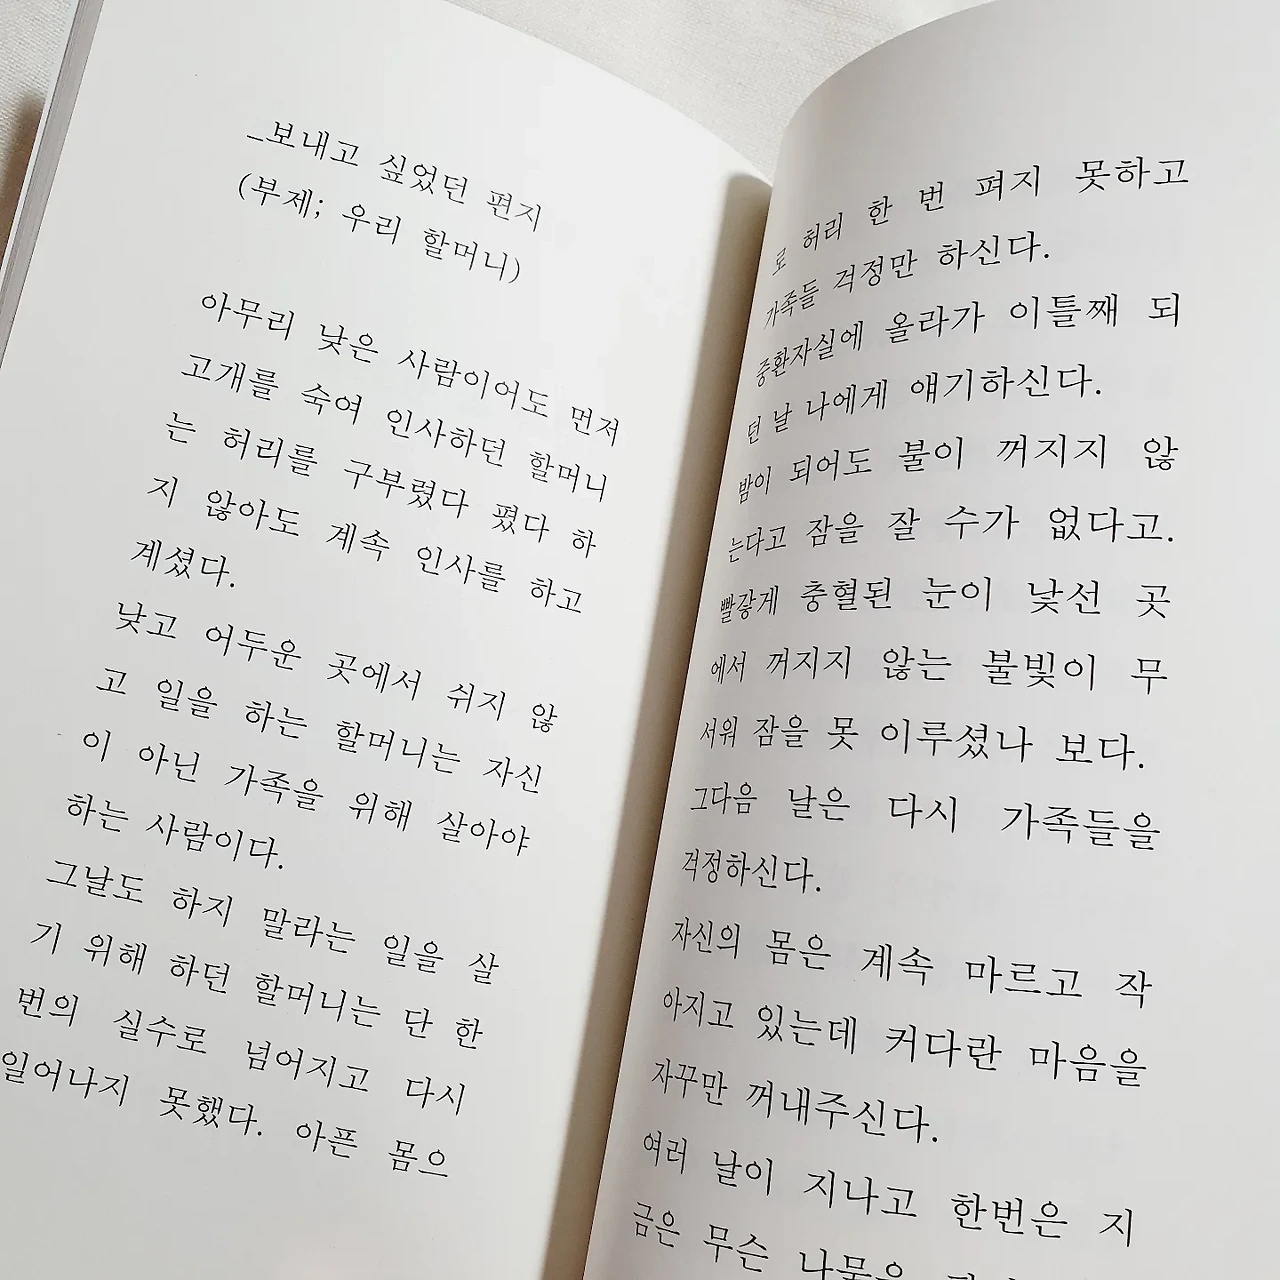 _보내고 싶었던 편지
(부제; 우리 할머니)
아무리 낮은 사람이어도 먼저
고개를 숙여 인사하던 할머니
는 허리를 구부렸다 폈다 하
지 않아도 계속 인사를 하고
계셨다.
낮고 어두운 곳에서 쉬지 않
고 일을 하는 할머니는 자신
이 아닌 가족을 위해 살아야
하는 사람이다.
그날도 하지 말라는 일을 살
기 위해 하던 할머니는 단 한
번의 실수로 넘어지고 다시
일어나지 못했다. 아픈 몸으
로 허리 한 번 펴지 못하고
가족들 걱정만 하신다.
중환자실에 올라가 이틀째 되
던 날 나에게 얘기하신다.
밤이 되어도 불이 꺼지지 않
는다고 잠을 잘 수가 없다고.
빨갛게 충혈된 눈이 낯선 곳
에서 꺼지지 않는 불빛이 무
서워 잠을 못 이루셨나 보다.
그다음 날은 다시 가족들을
걱정하신다.
자신의 몸은 계속 마르고 작
아지고 있는데 커다란 마음을
자꾸만 꺼내주신다.
여러 날이 지나고 한번은 지
금은 무슨 나물을